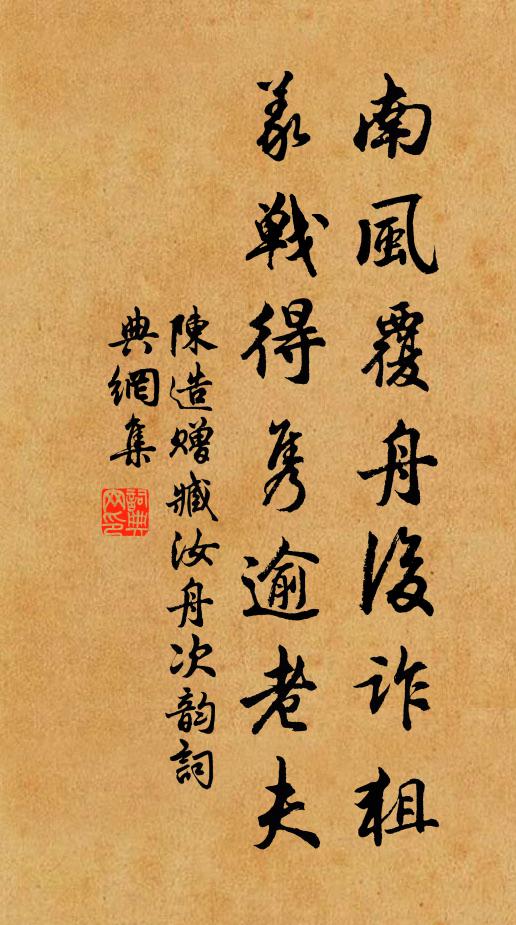 南風覆舟後詐狙
義戰得雋逾老夫
陳造贈臧汝舟次韵詞
典網集
詞典網印